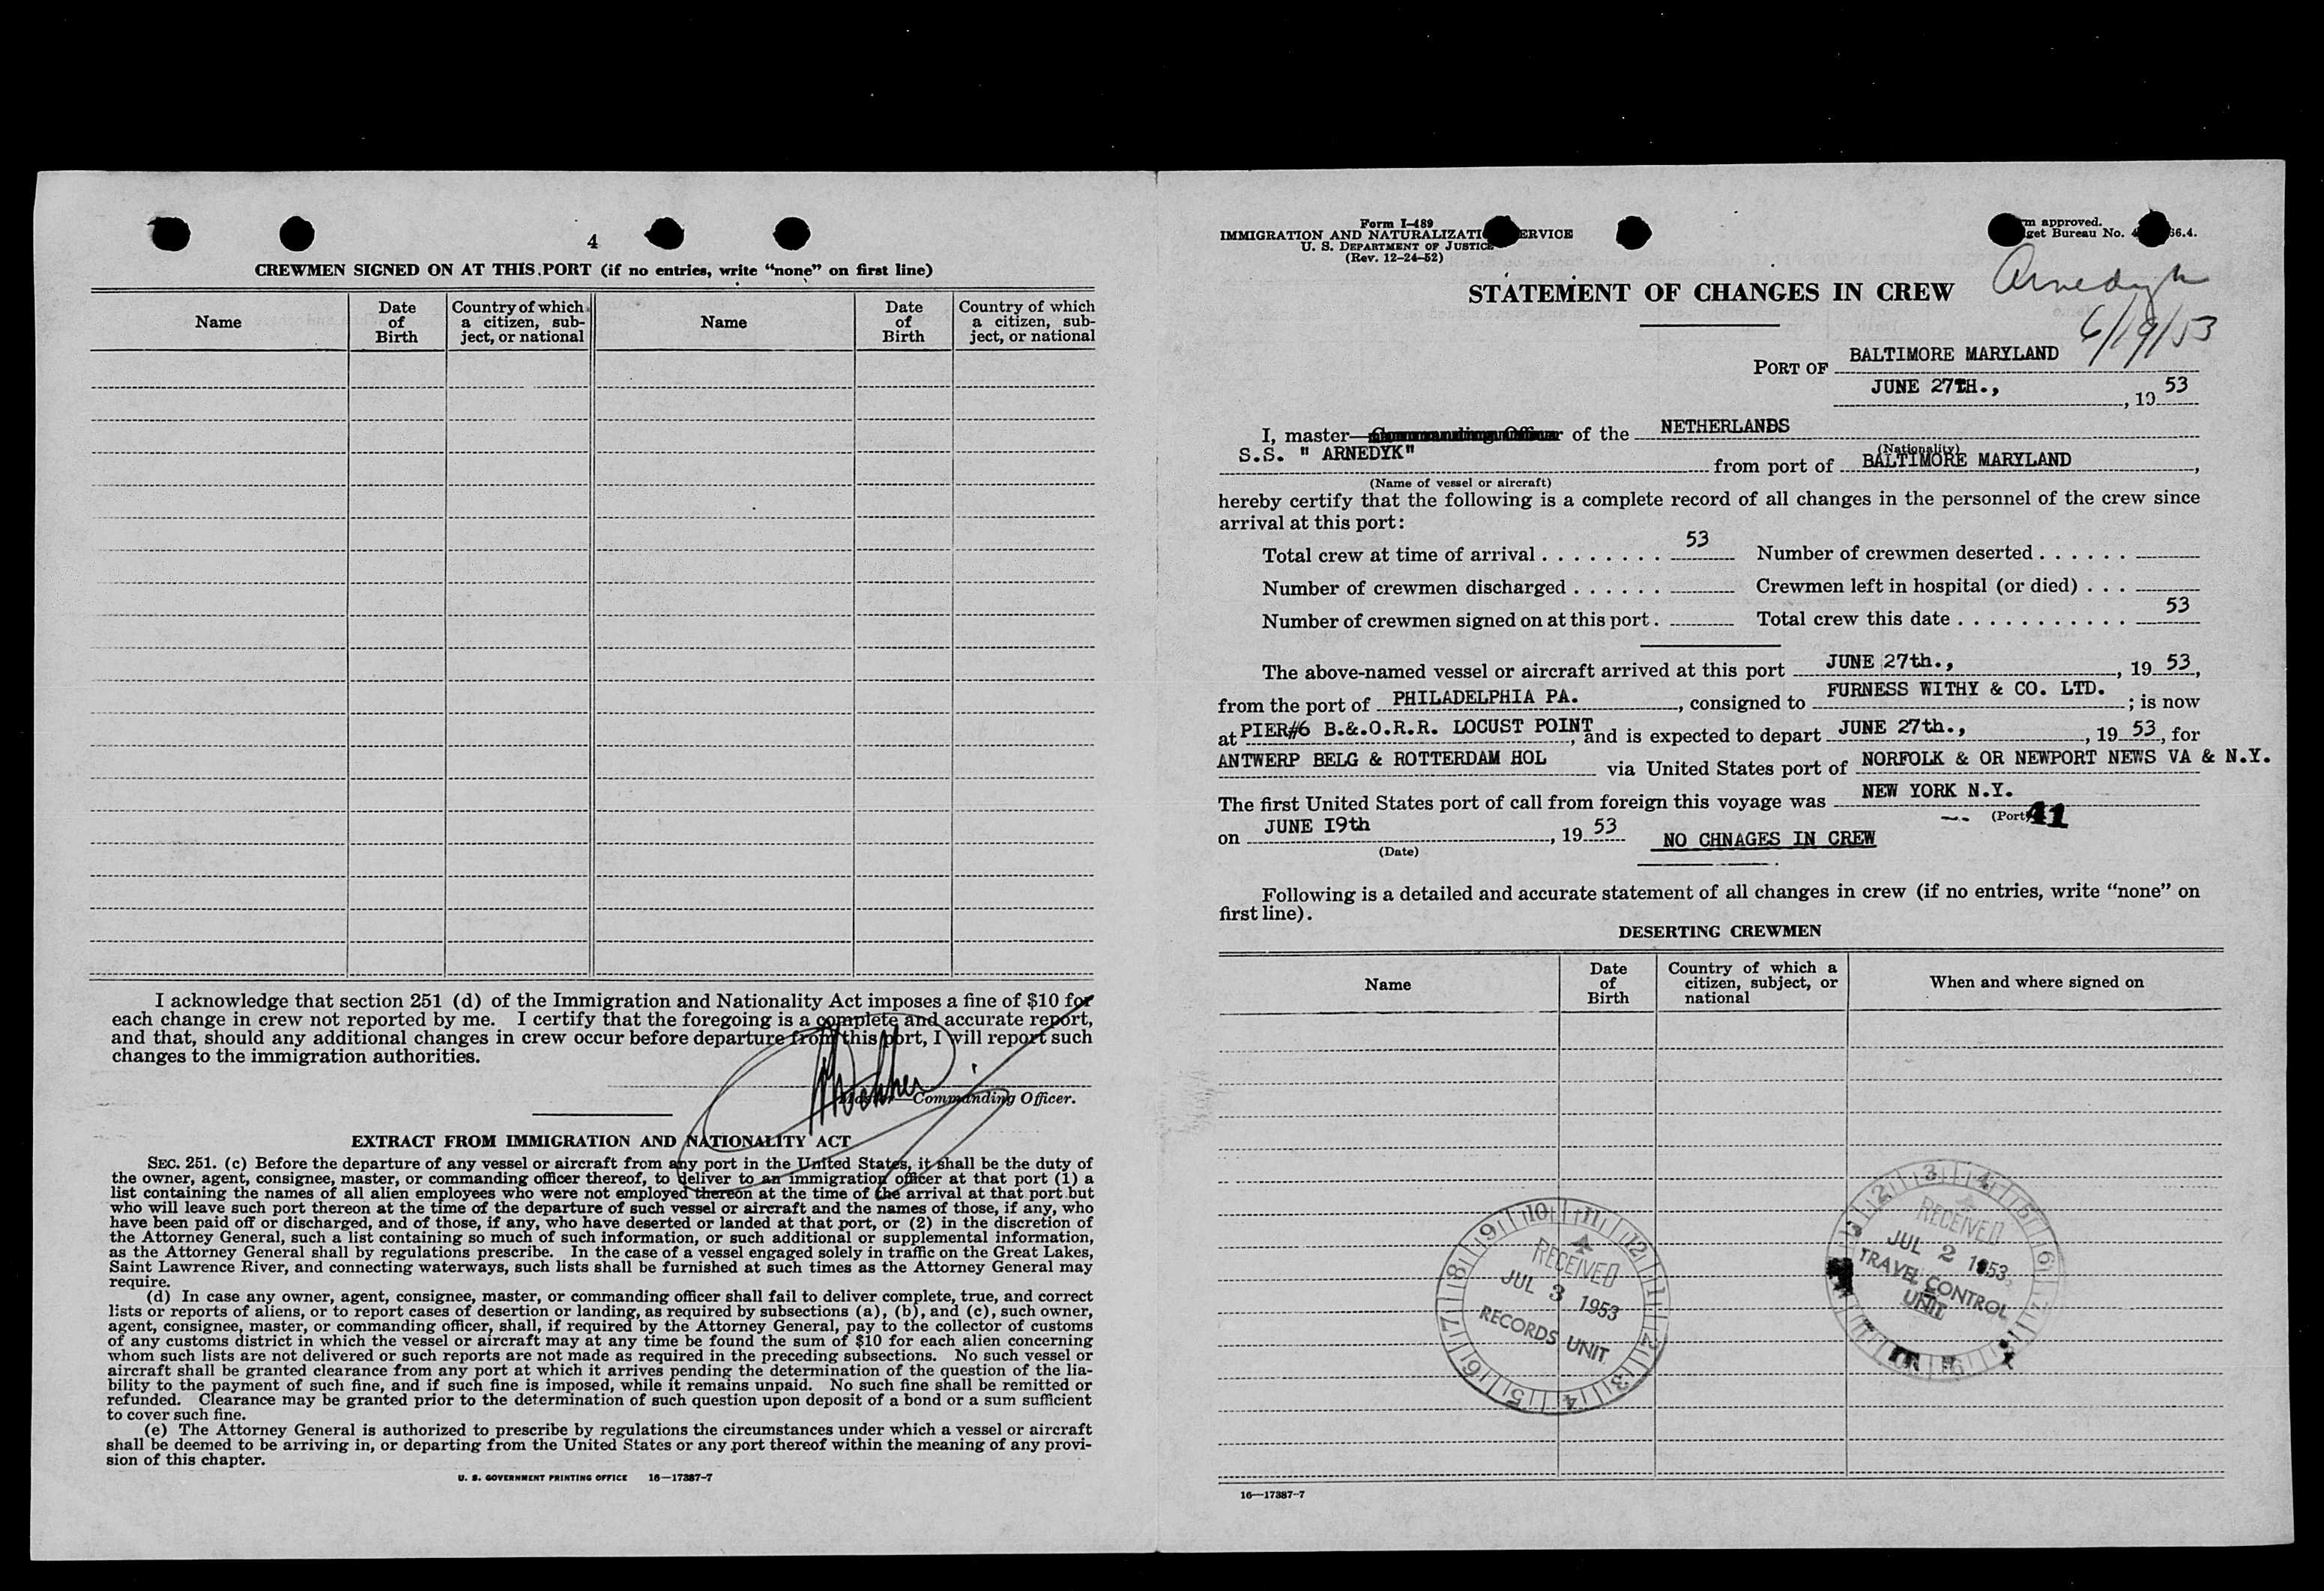 4
CREWMEN SIGNED ON AT THIS PORT (if no entries, write "none" on first line)
Name
Date of Birth
Country of which a citizen, subject, or national
Name
Date of Birth
Country of which a citizen, subject, or national
I acknowledge that section 251 (d) of the Immigration and Nationality Act imposes a fine of $10 for
each change in crew not reported by me. I certify that the foregoing is a complete and accurate report,
and that, should any additional changes in crew occur before departure from this port, I will report such
changes to the immigration authorities.
Master—Commanding Officer.
EXTRACT FROM IMMIGRATION AND NATIONALITY ACT
SEC. 251. (c) Before the departure of any vessel or aircraft from any port in the United States, it shall be the duty of
the owner, agent, consignee, master, or commanding officer thereof, to deliver to an immigration officer at that port (1) a
list containing the names of all alien employees who were not employed thereon at the time of the arrival at that port but
who will leave such port thereon at the time of the departure of such vessel or aircraft and the names of those, if any, who
have been paid off or discharged, and of those, if any, who have deserted or landed at that port, or (2) in the discretion of
the Attorney General, such a list containing so much of such information, or such additional or supplemental information,
as the Attorney General shall by regulations prescribe. In the case of a vessel engaged solely in traffic on the Great Lakes,
Saint Lawrence River, and connecting waterways, such lists shall be furnished at such times as the Attorney General may
require.
(d) In case any owner, agent, consignee, master, or commanding officer shall fail to deliver complete, true, and correct
lists or reports of aliens, or to report cases of desertion or landing, as required by subsections (a), (b), and (c), such owner,
agent, consignee, master, or commanding officer, shall, if required by the Attorney General, pay to the collector of customs
of any customs district in which the vessel or aircraft may at any time be found the sum of $10 for each alien concerning
whom such lists are not delivered or such reports are not made as required in the preceding subsections. No such vessel or
aircraft shall be granted clearance from any port at which it arrives pending the determination of the question of the lia-
bility to the payment of such fine, and if such fine is imposed, while it remains unpaid. No such fine shall be remitted or
refunded. Clearance may be granted prior to the determination of such question upon deposit of a bond or a sum sufficient
to cover such fine.
(e) The Attorney General is authorized to prescribe by regulations the circumstances under which a vessel or aircraft
shall be deemed to be arriving in, or departing from the United States or any port thereof within the meaning of any provi-
sion of this chapter.
U. S. GOVERNMENT PRINTING OFFICE 16—17387-7
Form I-489
IMMIGRATION AND NATURALIZATI ERVICE
U. S. DEPARTMENT OF JUSTICE
(Rev. 12-24-52)
m approved.
get Bureau No. 4 36.4.
Arnedyk
6/19/53
STATEMENT OF CHANGES IN CREW
PORT OF BALTIMORE MARYLAND
JUNE 27TH., , 19 53
I, master— of the NETHERLANDS
(Nationality)
S.S. " ARNEDYK" from port of BALTIMORE MARYLAND ,
(Name of vessel or aircraft)
hereby certify that the following is a complete record of all changes in the personnel of the crew since
arrival at this port:
Total crew at time of arrival . . . . . . . . 53 Number of crewmen deserted . . . . . .
Number of crewmen discharged . . . . . . Crewmen left in hospital (or died) . . .
Number of crewmen signed on at this port . Total crew this date . . . . . . . . . . . 53
The above-named vessel or aircraft arrived at this port JUNE 27th., , 19 53,
from the port of PHILADELPHIA PA. , consigned to FURNESS WITHY & CO. LTD. ; is now
at PIER#6 B.&.O.R.R. LOCUST POINT, and is expected to depart JUNE 27th., , 19 53, for
ANTWERP BELG & ROTTERDAM HOL via United States port of NORFOLK & OR NEWPORT NEWS VA & N.Y.
The first United States port of call from foreign this voyage was NEW YORK N.Y.
(Port) 41
on JUNE I9th , 19 53 NO CHNAGES IN CREW
(Date)
Following is a detailed and accurate statement of all changes in crew (if no entries, write "none" on
first line).
DESERTING CREWMEN
Name
Date of Birth
Country of which a citizen, subject, or national
When and where signed on
RECEIVED
JUL 3 1953
RECORDS UNIT
RECEIVED
JUL 2 1953
TRAVEL CONTROL
UNIT
16—17387-7